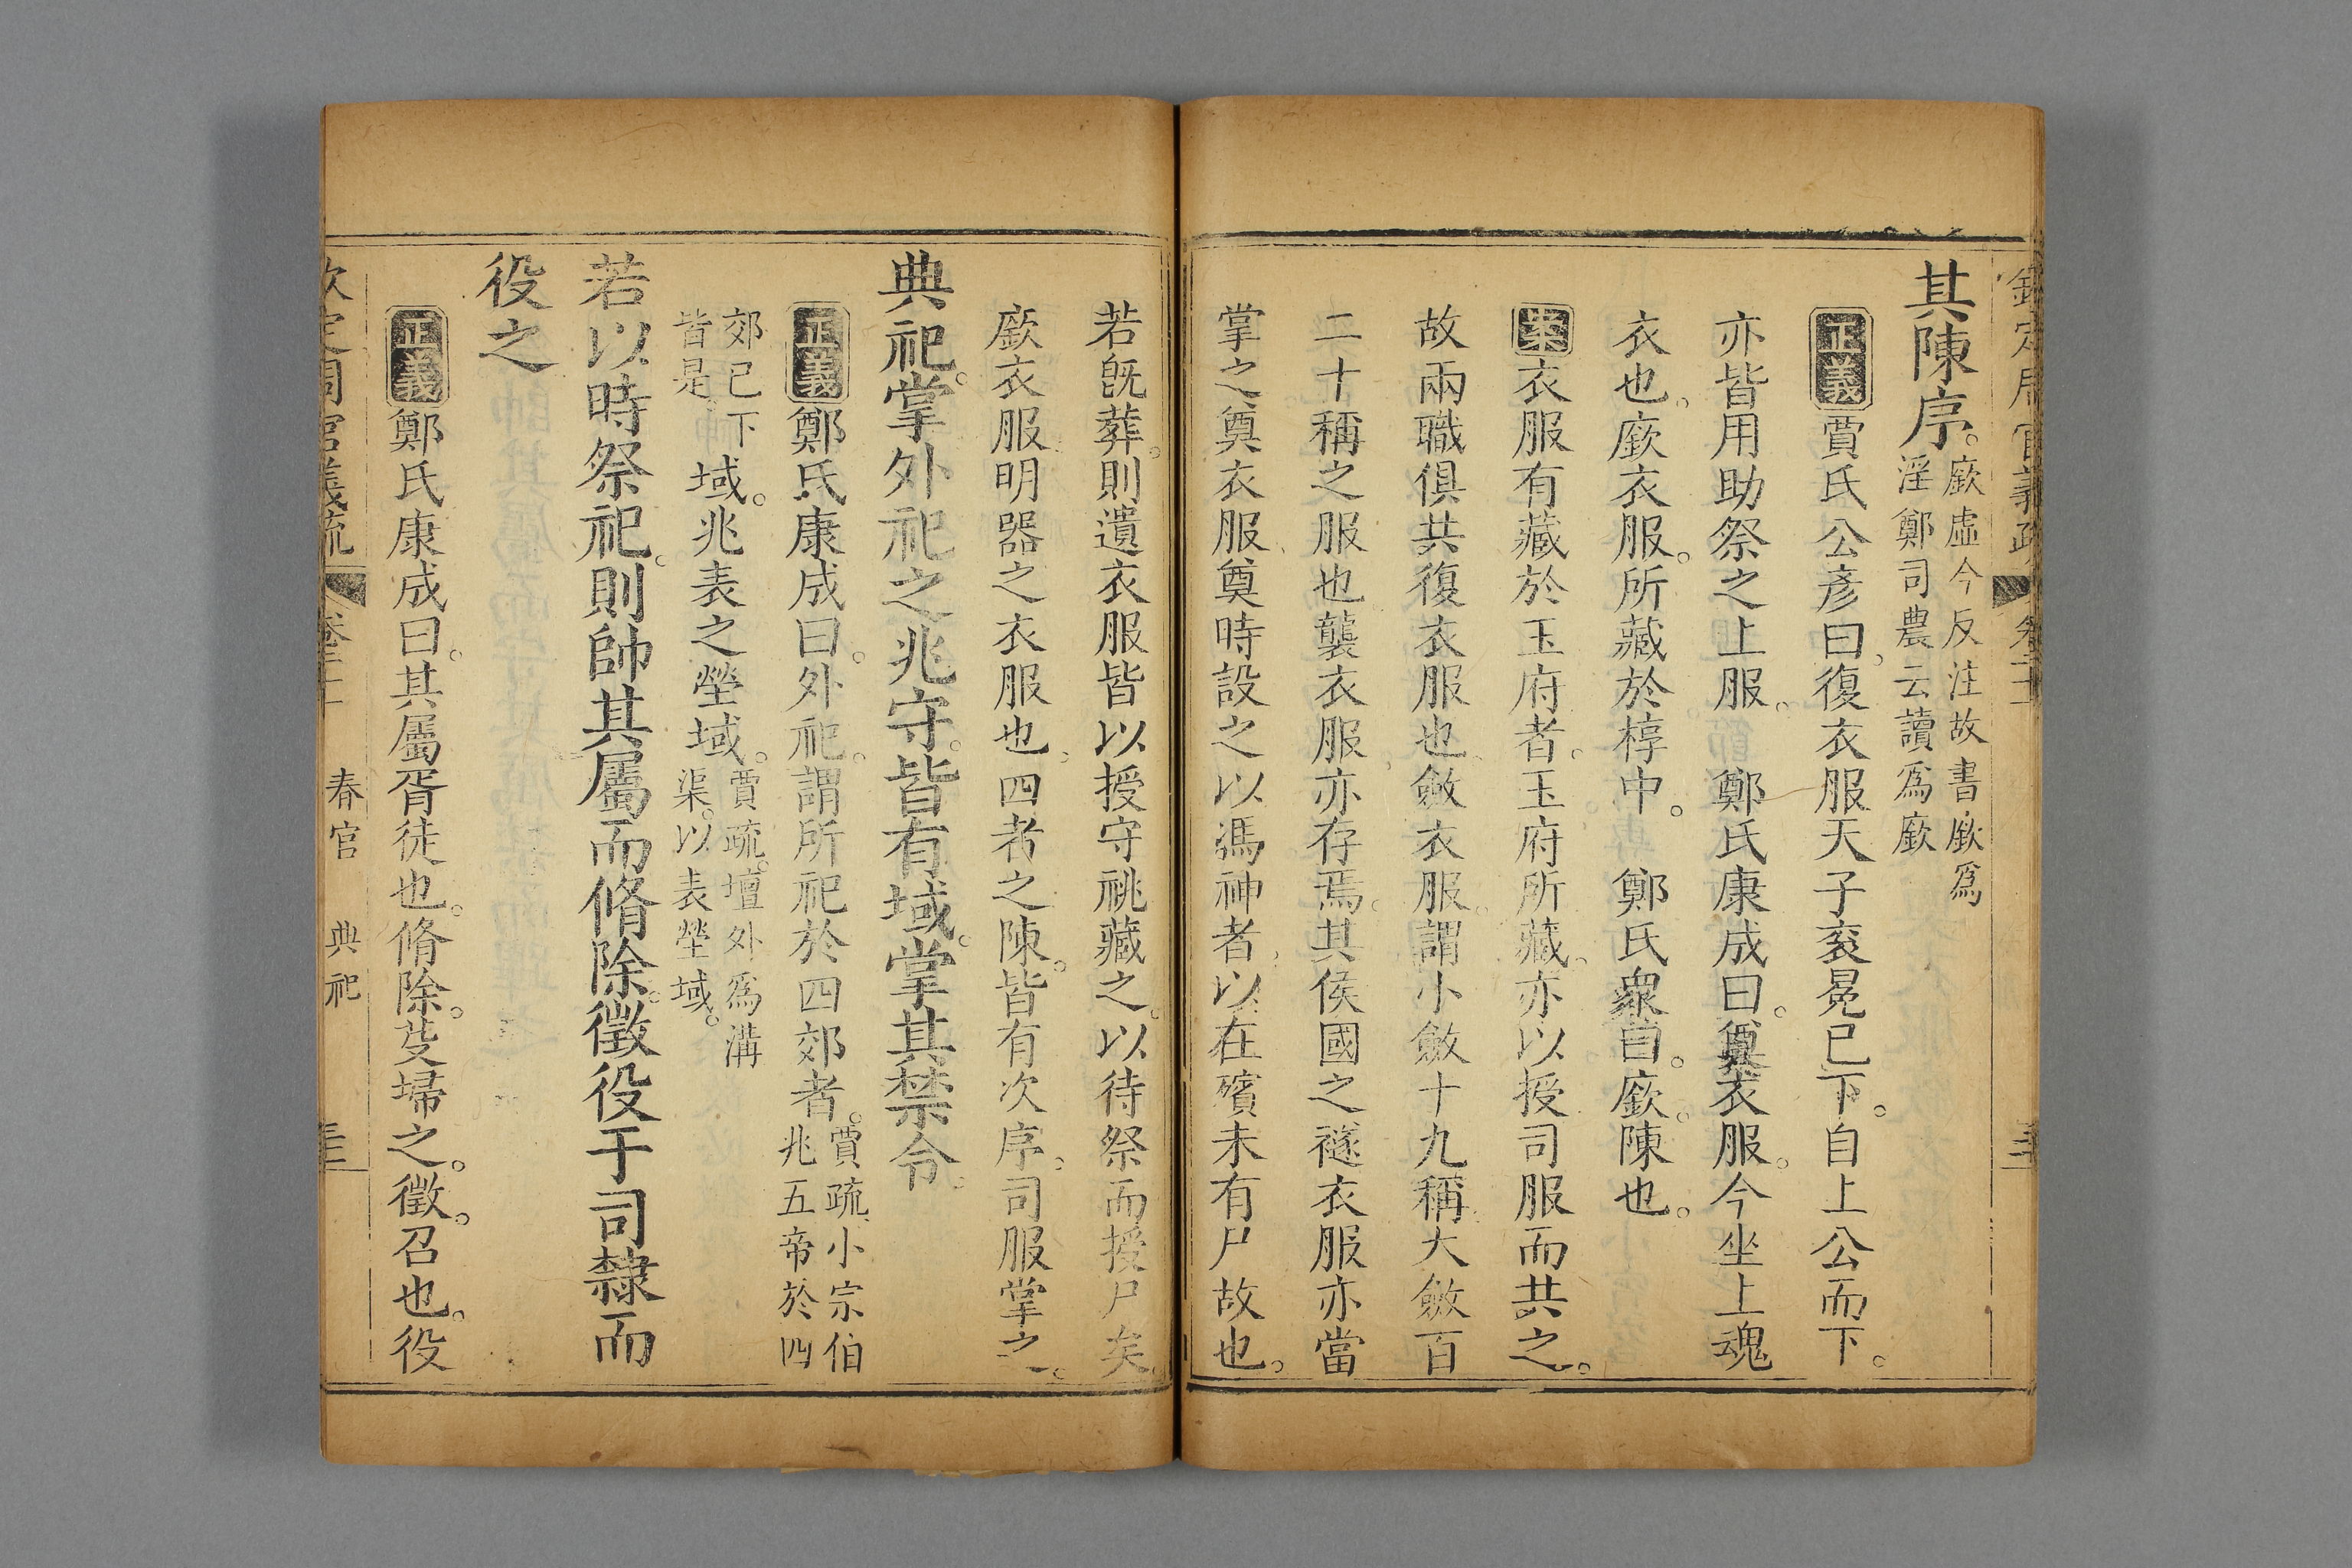 欽定周官義疏 卷二十一
其陳序。廞虛今反注故書廞爲
淫鄭司農云讀爲廞
正義賈氏公彥曰。復衣服天子衮冕已下。自上公而下。
亦皆用助祭之上服。 鄭氏康成曰。奠衣服。今坐上魂
衣也。廞衣服。所藏於椁中。 鄭氏衆曰。廞陳也。
案衣服有藏於玉府者。玉府所藏。亦以授司服而共之。
故兩職俱共復衣服也。斂衣服。謂小斂十九稱。大斂百
二十稱之服也。襲衣服。亦存焉。其侯國之襚衣服亦當
掌之奠衣服。奠時設之以馮神者。以在殯未有尸故也。
若既葬。則遺衣服皆以授守祧藏之。以待祭而授尸矣。
廞衣服明器之衣服也。四者之陳。皆有次序。司服掌之。
典祀。掌外祀之兆守。皆有域。掌其禁令。
正義鄭氏康成曰。外祀。謂所祀於四郊者。賈疏。小宗伯
兆五帝於四
郊已下
皆是。域。兆表之塋域。賈疏。壇外爲溝
渠。以表塋域。
若以時祭祀。則帥其屬而脩除。徵役于司隸而
役之
正義鄭氏康成曰。其屬胥徒也。脩除。芟埽之。徵。召也。役
欽定周官義疏 卷二十一 春官 典祀